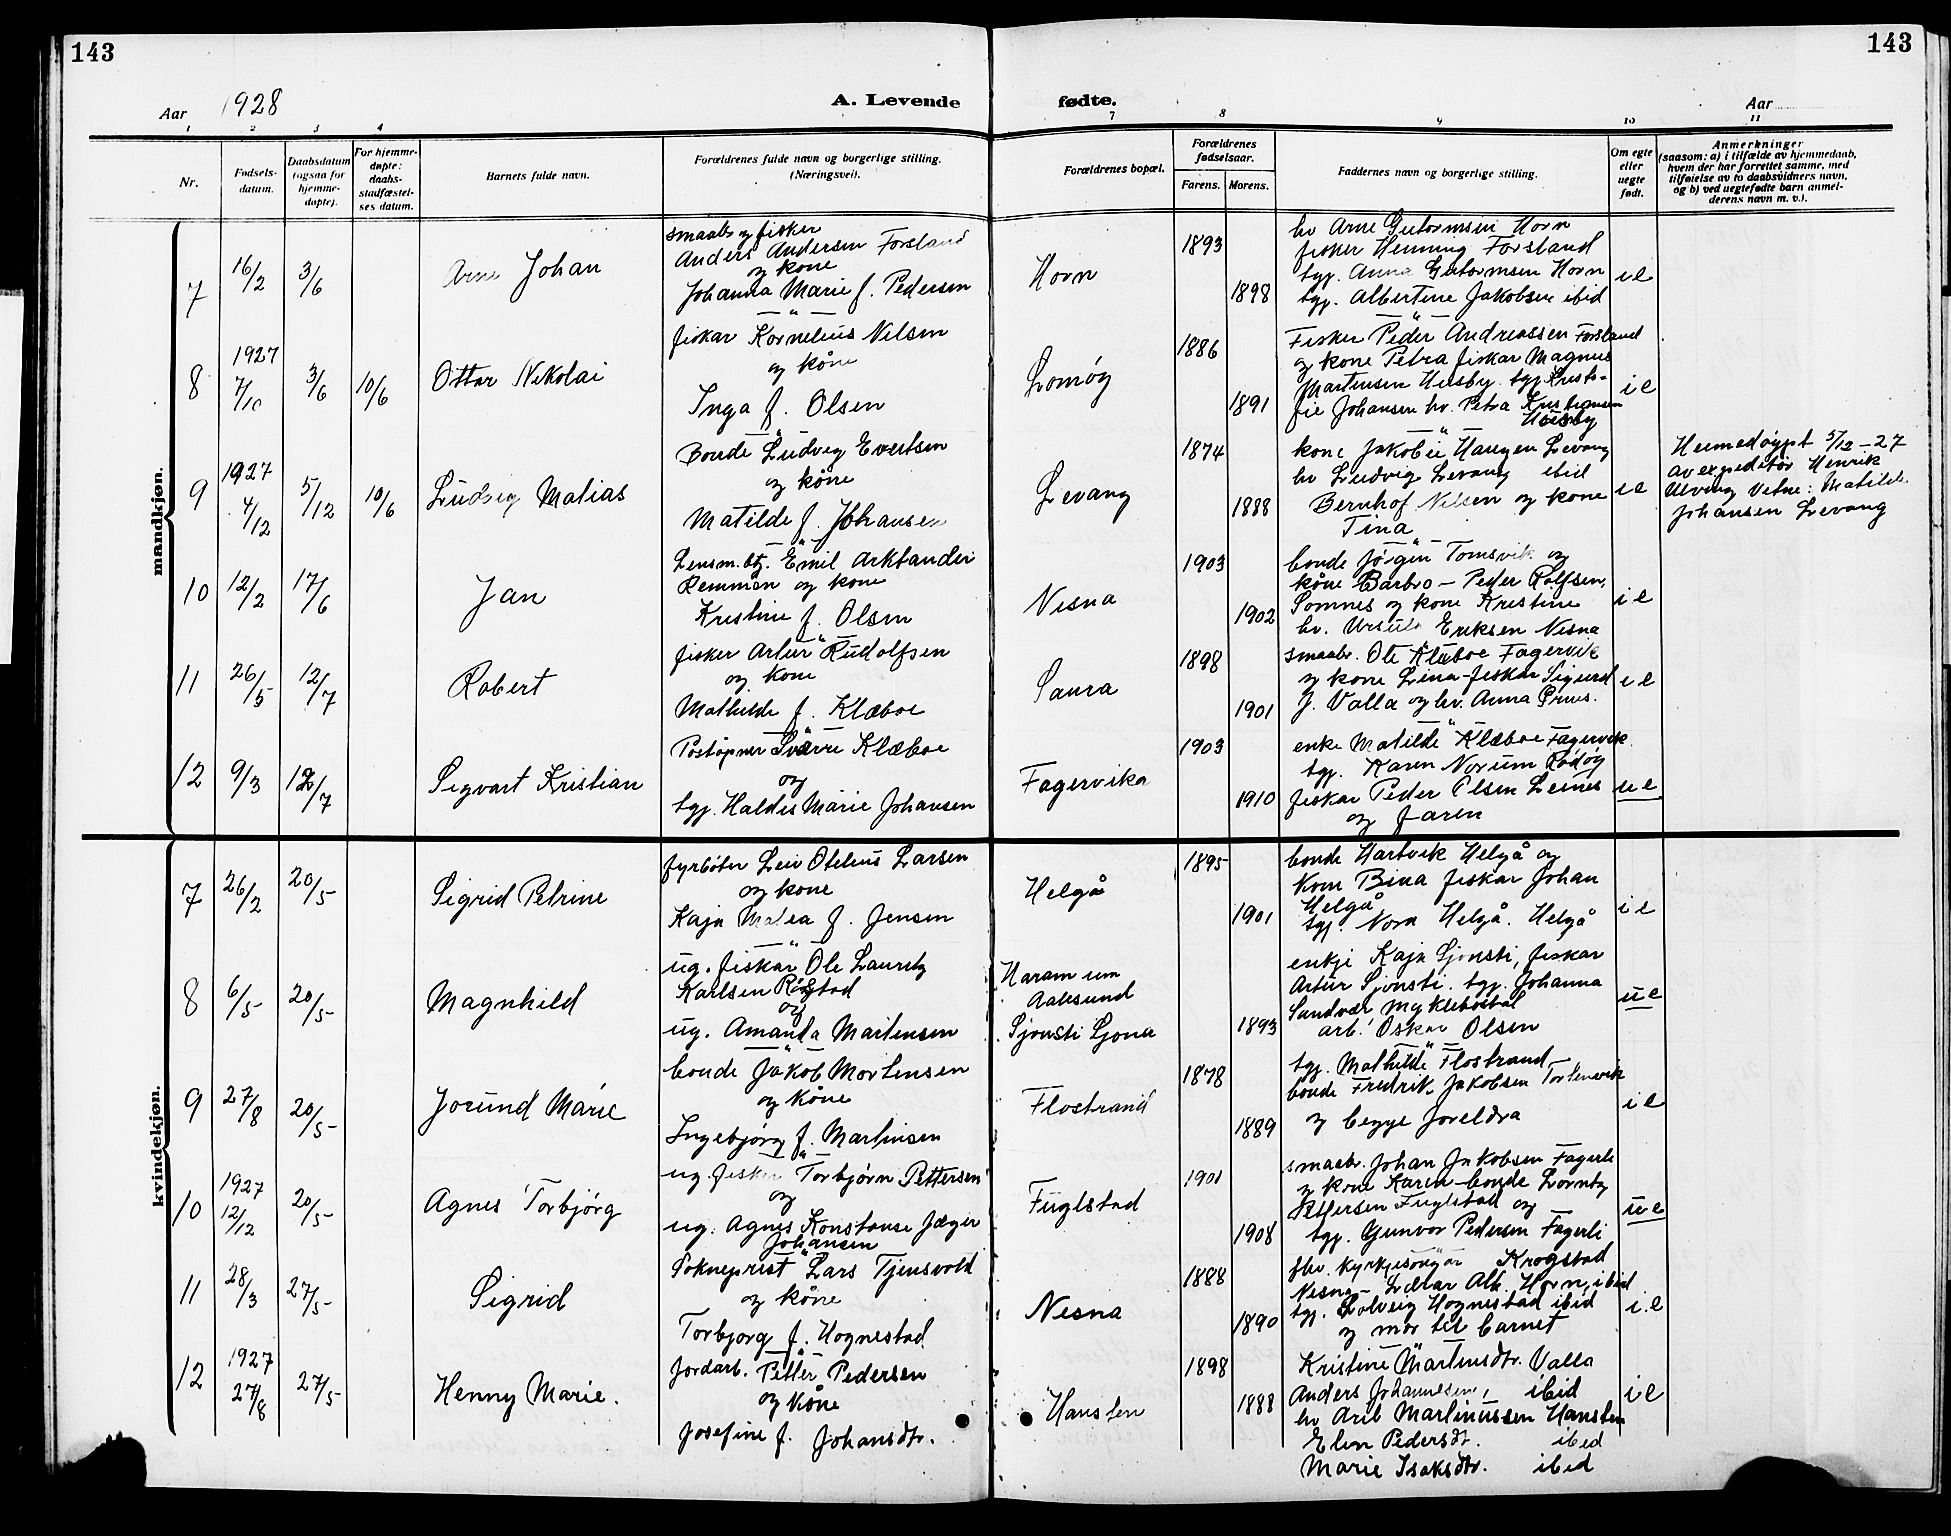 143
143
Aar 1928
A. Levende
fødte.
Aar
1 2 3 4 7 8 9 10 11
Nr.
Fødsels-
datum.
Daabsdatum
(ogsaa for
hjemme-
døpte).
For hjemme-
døpte:
daabs-
stadfæstel-
ses datum.
Barnets fulde navn.
Forældrenes fulde navn og borgerlige stilling.
(Næringsvei).
Forældrenes bopæl.
Forældrenes
fødselsaar.
Farens.
Morens.
Faddernes navn og borgerlige stilling.
Om egte
eller
uegte
født.
Anmerkninger
(saasom: a) i tilfælde av hjemmedaab,
hvem der har forrettet samme, med
tilføielse av to daabsvidners navn,
og b) ved uegtefødte barn anmel-
derens navn m. v.).
mandkjøn.
7
16/2
3/6
Arne Johan
smaabr og fisker
Anders Andersen Forsland
og kone
Johanna Marie f. Pedersen
Horn
1893
1898
hv Arne Gutormsen Horn
fisker Henning Forsland
tgj. Anna Gutormsen Horn
tgj. Albertine Jakobsen ibid
i e
8
1927
7/10
3/6
10/6
Ottar Nikolai
fiskar Kornelius Nilsen
og kone
Inga f. Olsen
Lomøy
1886
1891
Fisker Peder Andreassen Forsland
og kone Petra fiskar Magnus
Martensen Husby. tgj. Kristo-
fie Johansen hv. Petra Kristiansen
Husby
i e
9
1927
4/12
5/12
10/6
Ludvig Matias
Bonde Ludvig Evertsen
og kone
Matilde f. Johansen
Levang
1874
1888
kone Jakobie Haugen Levang
hv Ludvig Levang ibid
Bernhof Nilsen og kone
Tina
i e
Heimedøypt 5/12-27
av expeditør Henrik
Ulving Vitne: Matilde
Johansen Levang
10
12/2
17/6
Jan
Lensm.btj. Emil Arktander
Remmen og kone
Kristine f. Olsen
Nesna
1903
1902
bonde Jørgen Tomsvik og
kone Barbro - Peder Rolfsen,
Somnes og kone Kristine
hv. Ursula Eriksen Nesna
i e
11
26/5
12/7
Robert
fisker Artur Rudolfsen
og kone
Mathilde f. Klæboe
Saura
1898
1901
smaabr. Ole Klæboe Fagervik
og kone Lina - fiskar Sigurd
J. Valla og hv. Anna
i e
12
9/3
12/7
Sigvart Kristian
Postopner Sverre Klæboe
og
tgj. Haldis Marie Johansen
Fagervika
1903
1910
enke Matilde Klæboe Fagervik
tgj. Karen Norum Rødøy
fiskar Peder Olsen Leines
og faren
u e
kvindekjøn.
7
26/2
20/5
Sigrid Petrine
fyrbøter Leiv Otelius Larsen
og kone
Kaja Matea f. Jensen
Helgå
1895
1901
bonde Hartvik Helgå og
Kone Bina fiskar Johan
Helgå
tgj. Nora Helgå. Helgå
i e
8
6/5
20/5
Magnhild
ug. fiskar Ole Lauritz
Karlsen Røgstad
og
ug. Amanda Martensen
Haram um
Aalesund
Sjonsti Sjona
1893
enkje Kaja Sjonsti, fiskar
Artur Sjonsti. tgj. Johanna
Sandvær Myklebostad
arb. Oskar Olsen
u e
9
27/8
20/5
Jorund Marie
bonde Jakob Mortensen
og kone
Ingebjørg f. Martinsen
Flostrand
1878
1889
tgj. Mathilde Flostrand -
bonde Fredrik Jakobsen Torlenvik
og begge foreldra
i e
10
1927
12/12
20/5
Agnes Torbjørg
ug. fisker Torbjørn Pettersen
og
ug. Agnes Konstanse Jæger
Johansen
Fuglstad
1901
1908
smaabr. Johan Jakobsen Fagerli
og kone Karen - bonde Lorntz
Pettersen Fuglstad og
tgj. Gunvor Pedersen Fagerli
u e
11
28/3
27/5
Sigrid
Sokneprest Lars Tjensvold
og kone
Torbjorg f. Hognestad
Nesna
1888
1890
fhv. kyrkjesongar Krogstad
Nesna - Lærar Alb. Horn, ibid
tgj. Solveig Hognestad ibid
og mor til barnet
i e
12
1927
27/8
27/5
Henny Marie.
Jordarb. Petter Pedersen
og kone
Josefine f. Johansdtr.
Hansten
1898
1888
Kristine Martinsdtr. Valla
Anders Johannesen, ibid
hv Aril Martinussen Hansten
Elen Pedersdt. ibid
Marie Isaksdtr. ibid
i e